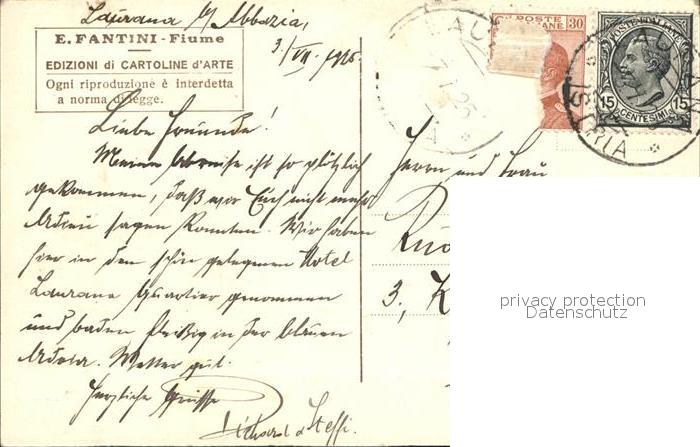 Laurana b/ Abbazia,
3./VII. 1925.
E. FANTINI - Fiume
EDIZIONI di CARTOLINE d'ARTE
Ogni riproduzione è interdetta
a norma di legge.
POSTE
30
POSTE ITALIANE
15 15
CENTESIMI
ISTRIA
Liebe Freunde!
Meine Abreise ist so plötzlich
gekommen, daß wir Euch nicht mehr
Adieu sagen konnten. Wir haben
hier in dem schön gelegenen Hotel
Laurana Quartier genommen
und baden fleißig in der blauen
Adria. Wetter gut.
Herzliche Grüsse
Richard & Steffi.
Herrn und Frau
3.,
privacy protection
Datenschutz